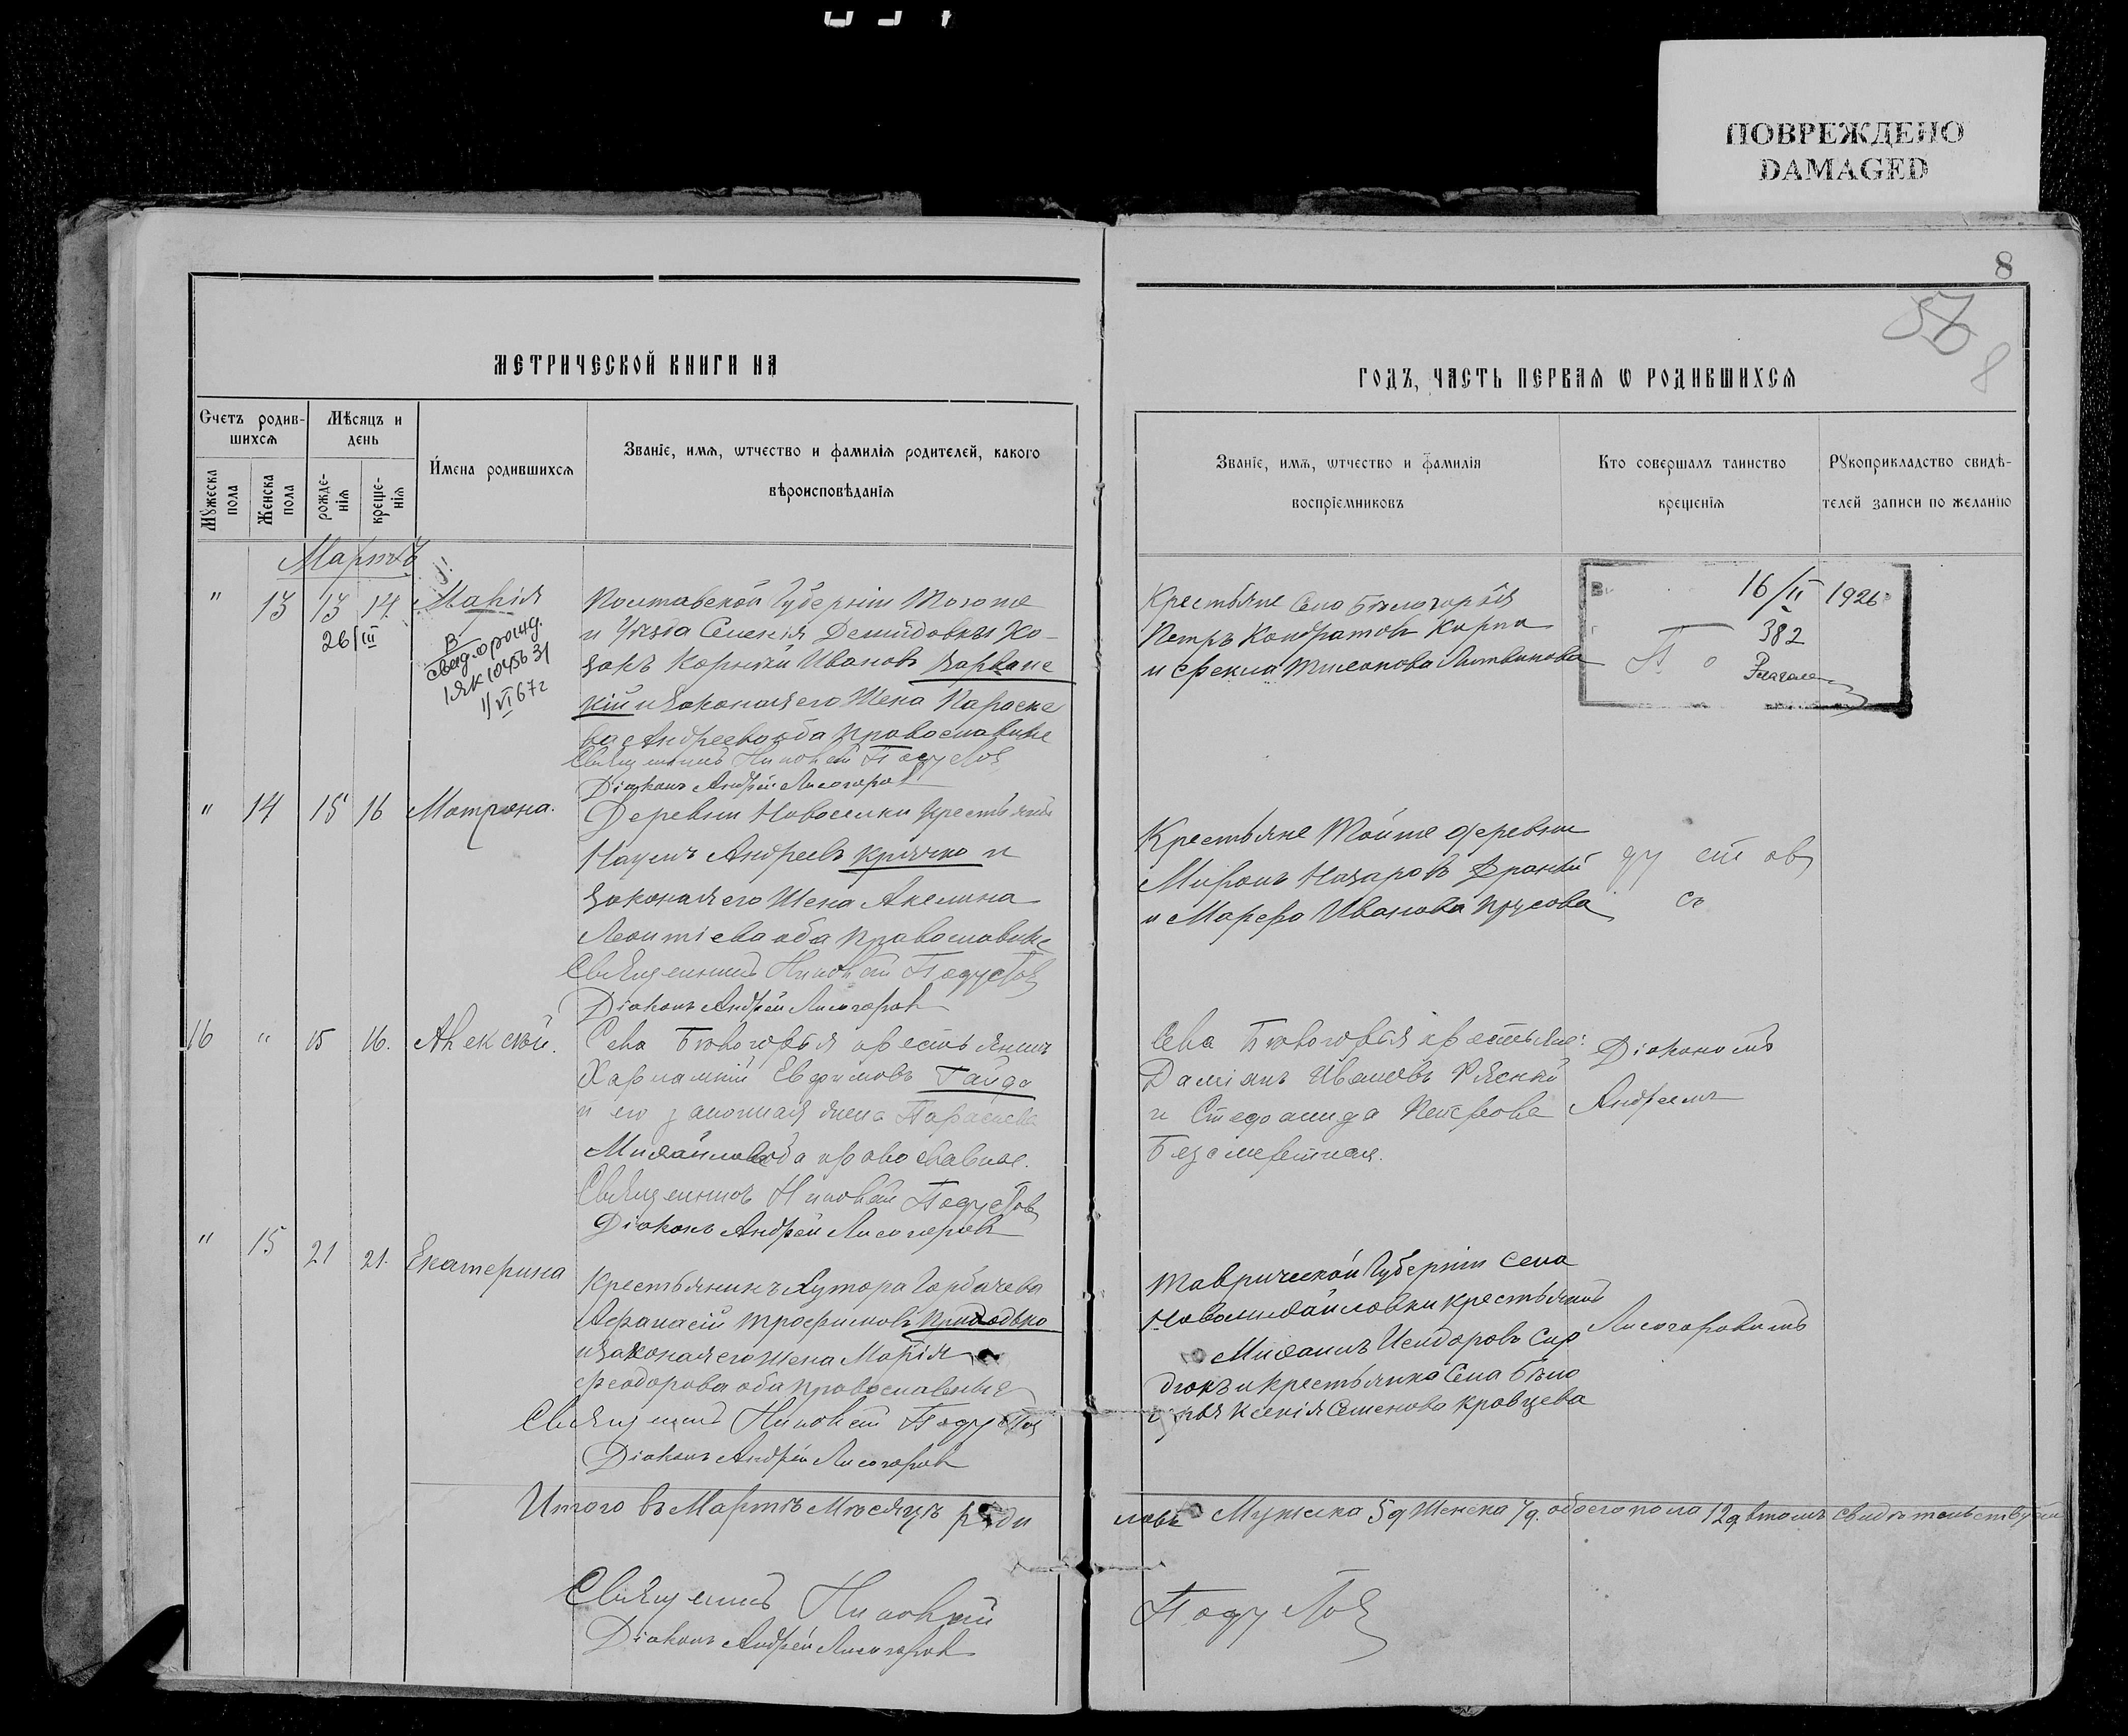 ПОВРЕЖДЕНО
DAMAGED
8
56
8
МЕТРИЧЕСКОЙ КНИГИ НА
ГОДЪ, ЧАСТЬ ПЕРВАѦ Ѡ РОДИВШИХСѦ
Счетъ родив-
шихсѧ
Мѣсяцъ и
день
Мꙋжеска
пола
Женска
пола
рожде-
нїѧ
креще-
нїѧ
Имена родившихсѧ
Званїе, имѧ, ѿтчество и фамилїѧ родителей, какого
вѣроисповѣданїѧ
Званїе, имѧ, ѿтчество и фамилїѧ
воспрїемниковъ
Кто совершалъ таинство
крещенїѧ
Рꙋкоприкладство свидѣ-
телей записи по желанїю
Мартъ
" 13 13 14 Марія
26/III
В
свид. о рожд.
1ЯК 104563
1/VI 67 г
Полтавской Губерніи Тогоже
и Уѣзда Селенія Демидовки Ко-
закъ Корнѣй Ивановъ
кій и законная его Жена Параске
ва Андреева оба Православные
Священникъ Николай
Діаконъ Андрей Лисогоровъ
Крестьяне Села Бѣлогорья
Петръ Кондратовъ Карпа
и Фекла Литвинова
16/II 1926
382
" 14 15 16 Матрона.
Деревни Новоселки Крестьянинъ
Наумъ Андреевъ Крячко и
законная его Жена Акелина
Леонтіева оба Православные
Священникъ Николай
Діаконъ Андрей Лисогоровъ
Крестьяне Тойже деревни
Миронъ Назаровъ
и Марфа Иванова
16 " 15 16. Алексѣй.
Села Бѣлогорья крестьянинъ
Харлампій Евфимовъ Гайда
и его законная жена Параскева
Михайлова оба православные.
Священникъ Николай
Діаконъ Андрей Лисогоровъ
Села Бѣлогорья крестьяне:
Даміанъ Ивановъ
и Стефанида Петрова
Безсмертная.
Діакономъ
Андреемъ
" 15 21 21. Екатерина
Крестьянинъ Хутора Горбачева
Афанасій Трофимовъ Приходько
и законная его жена Марія
Феодорова оба православные
Священникъ Николай
Діаконъ Андрей Лисогоровъ
Таврической Губерніи Села
Новомихайловки крестьянинъ
Михаилъ Исидоровъ Сир
дюкъ и крестьянка Села Бѣло
горья Ксенія Семенова Кравцева
Лисогоровымъ
Итого въ Мартѣ Мѣсяцѣ роди
лось Мужска 5 д Женска 7 д. обоего пола 12 д втомъ свидѣтельствуемъ
Священникъ Николай
Діаконъ Андрей Лисогоровъ